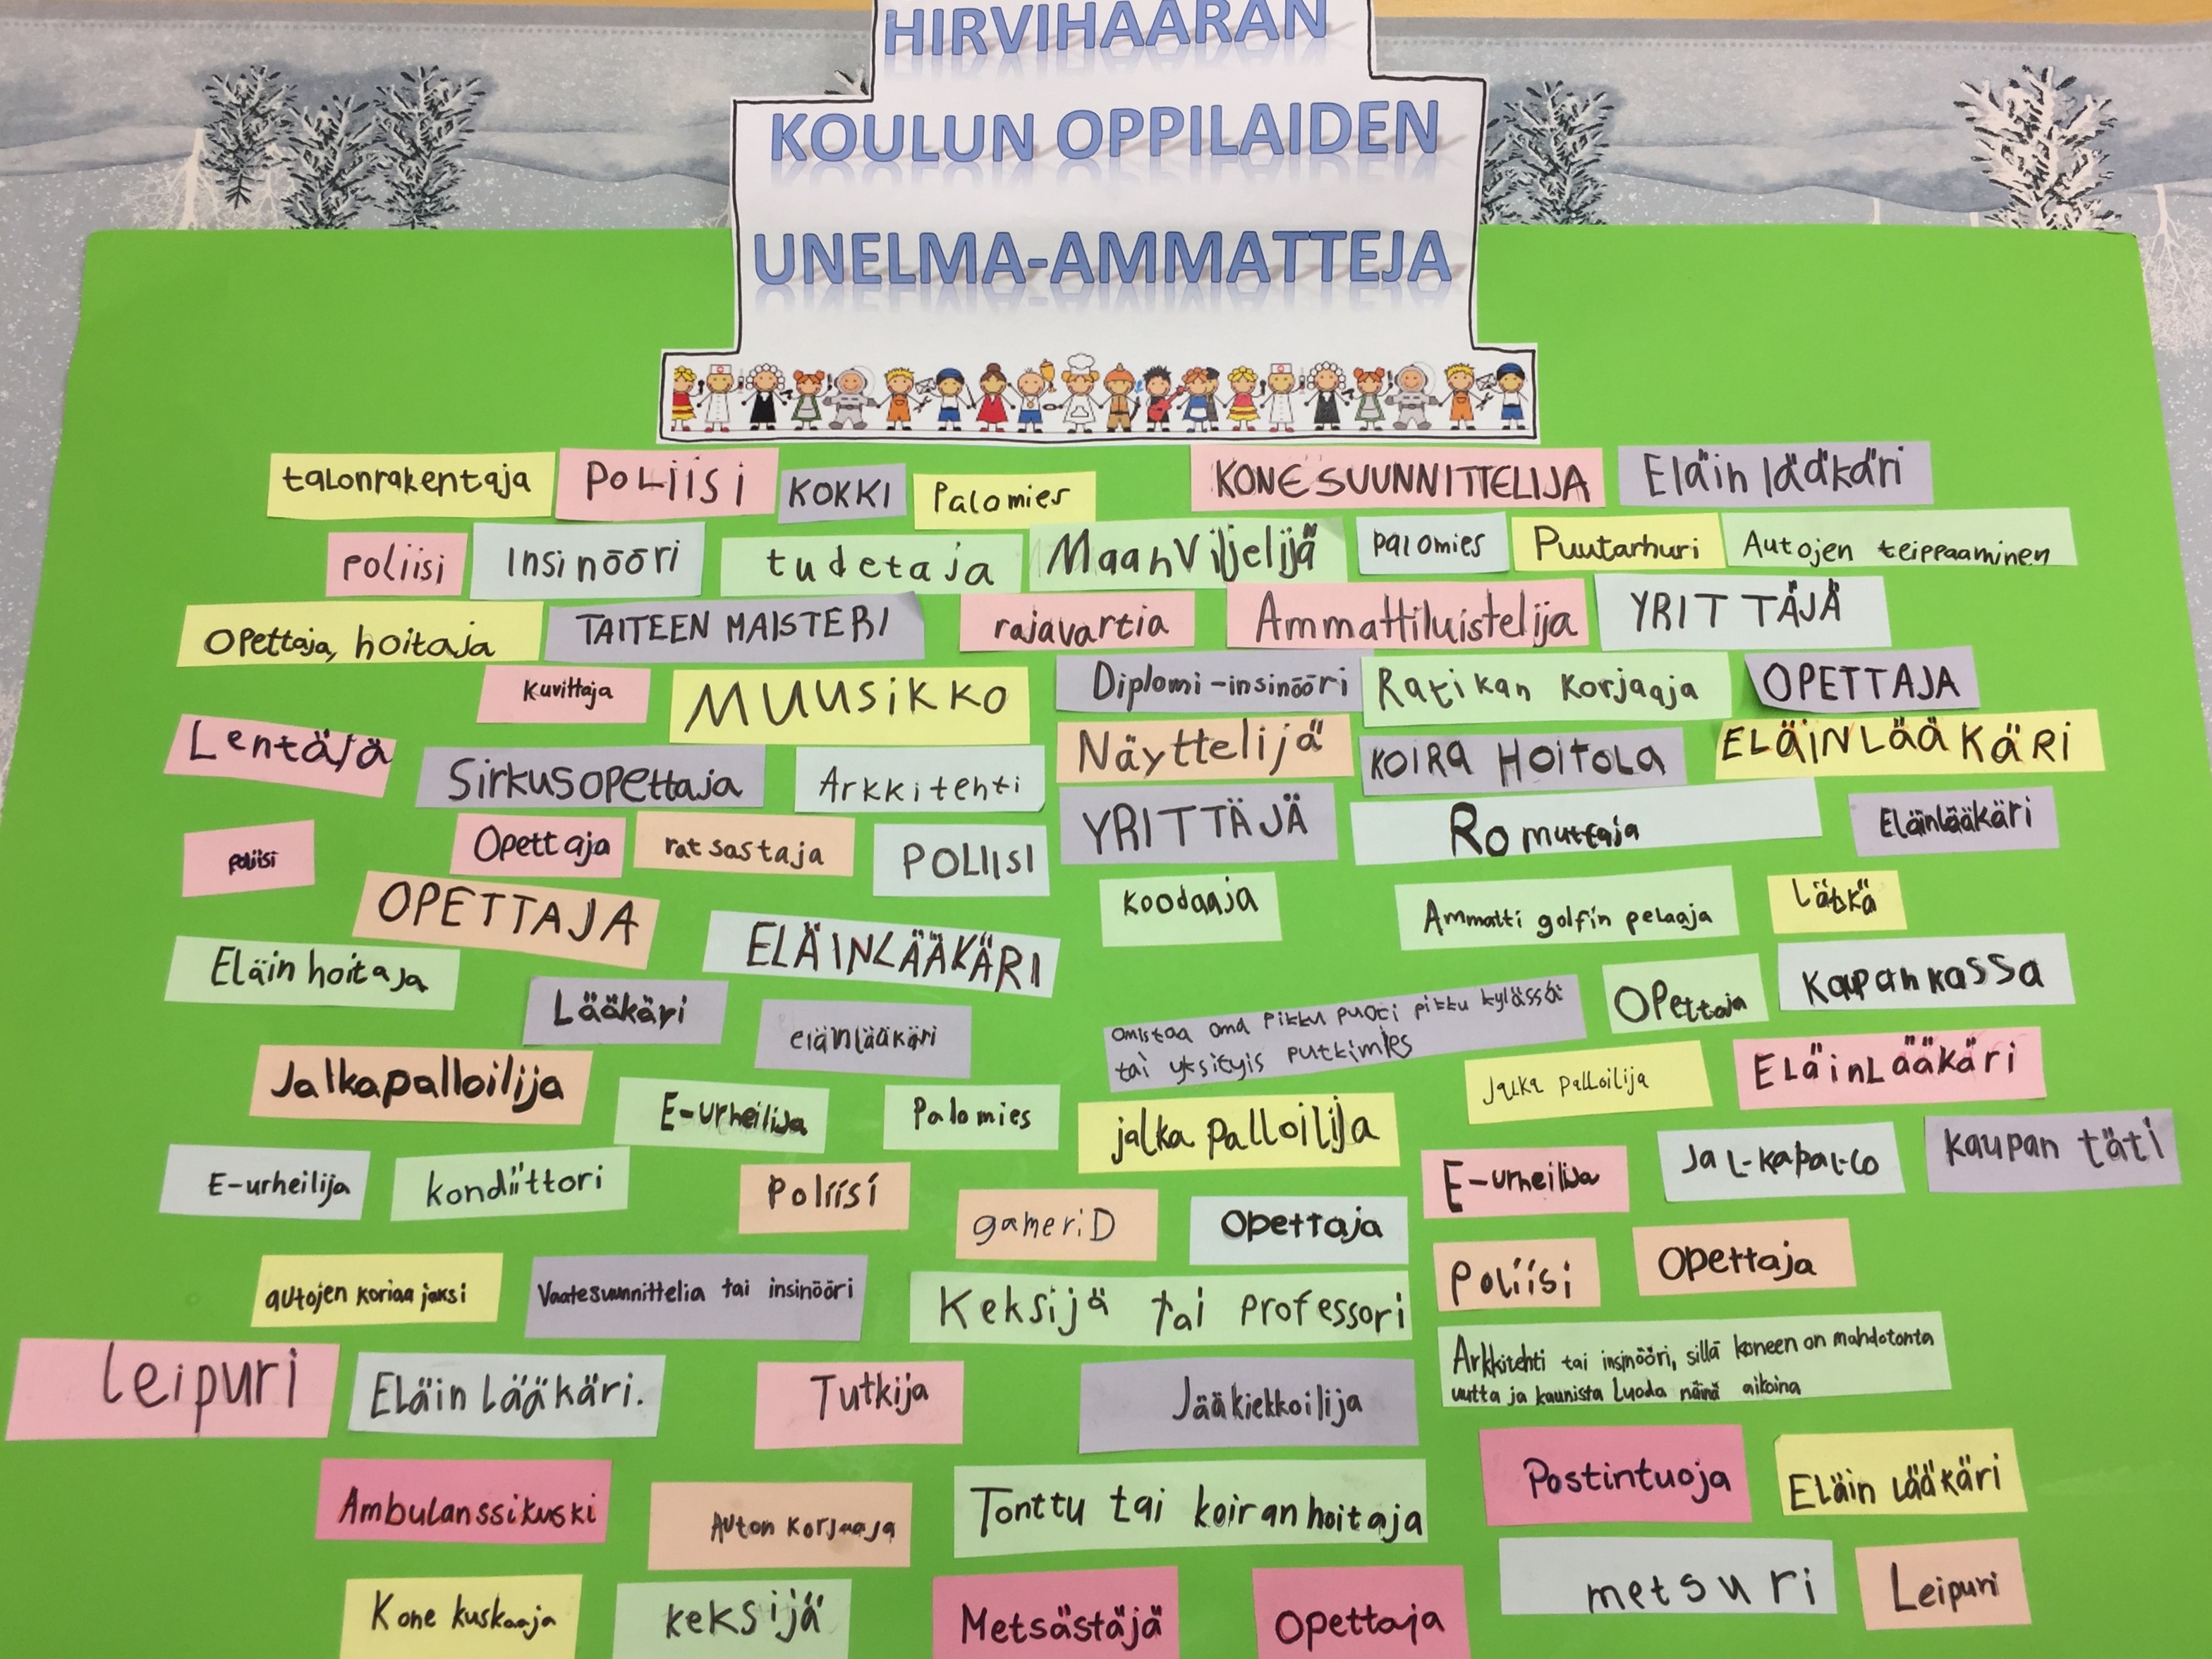 HIRVIHAARAN
KOULUN OPPILAIDEN
UNELMA-AMMATTEJA
talonrakentaja
POLIISI
KOKKI
Palomies
KONESUUNNITTELIJA
Eläin lääkäri
poliisi
Insinööri
tudetaja
Maanviljelijä
palomies
Puutarhuri
Autojen teippaaminen
Opettaja, hoitaja
TAITEEN MAISTERI
rajavartia
Ammattiluistelija
YRITTÄJÄ
Kuvittaja
MUUSIKKO
Diplomi-insinööri
Ratikan Korjaaja
OPETTAJA
Lentäjä
Sirkusopettaja
Arkkitehti
Näyttelijä
KOIRA HOITOLA
ELÄINLÄÄKÄRI
poliisi
Opettaja
ratsastaja
POLIISI
YRITTÄJÄ
Romuttaja
Eläinlääkäri
OPETTAJA
ELÄINLÄÄKÄRI
koodaaja
Ammatti golfin pelaaja
Lätkä
Eläin hoitaja
Lääkäri
eläinlääkäri
omistaa oma pikku puoti pikku kylässä
tai yksityis putkimies
Opettaja
Kaupan kassa
Jalkapalloilija
E-urheilija
Palomies
jalka palloilija
Jalka palloilija
ELäinLääkäri
E-urheilija
kondiittori
Poliisi
gameriD
Opettaja
E-urheilija
Jalkapallo
Kaupan täti
autojen koriaajaksi
Vaatesuunnittelia tai insinööri
Keksijä tai professori
Poliisi
Opettaja
Leipuri
Eläin lääkäri.
Tutkija
Jääkiekkoilija
Arkkitehti tai insinööri, sillä koneen on mahdotonta
uutta ja kaunista luoda näinä aikoina
Ambulanssikuski
Auton korjaaja
Tonttu tai koiranhoitaja
Postintuoja
Eläin lääkäri
Kone kuskaaja
keksijä
Metsästäjä
Opettaja
metsuri
Leipuri